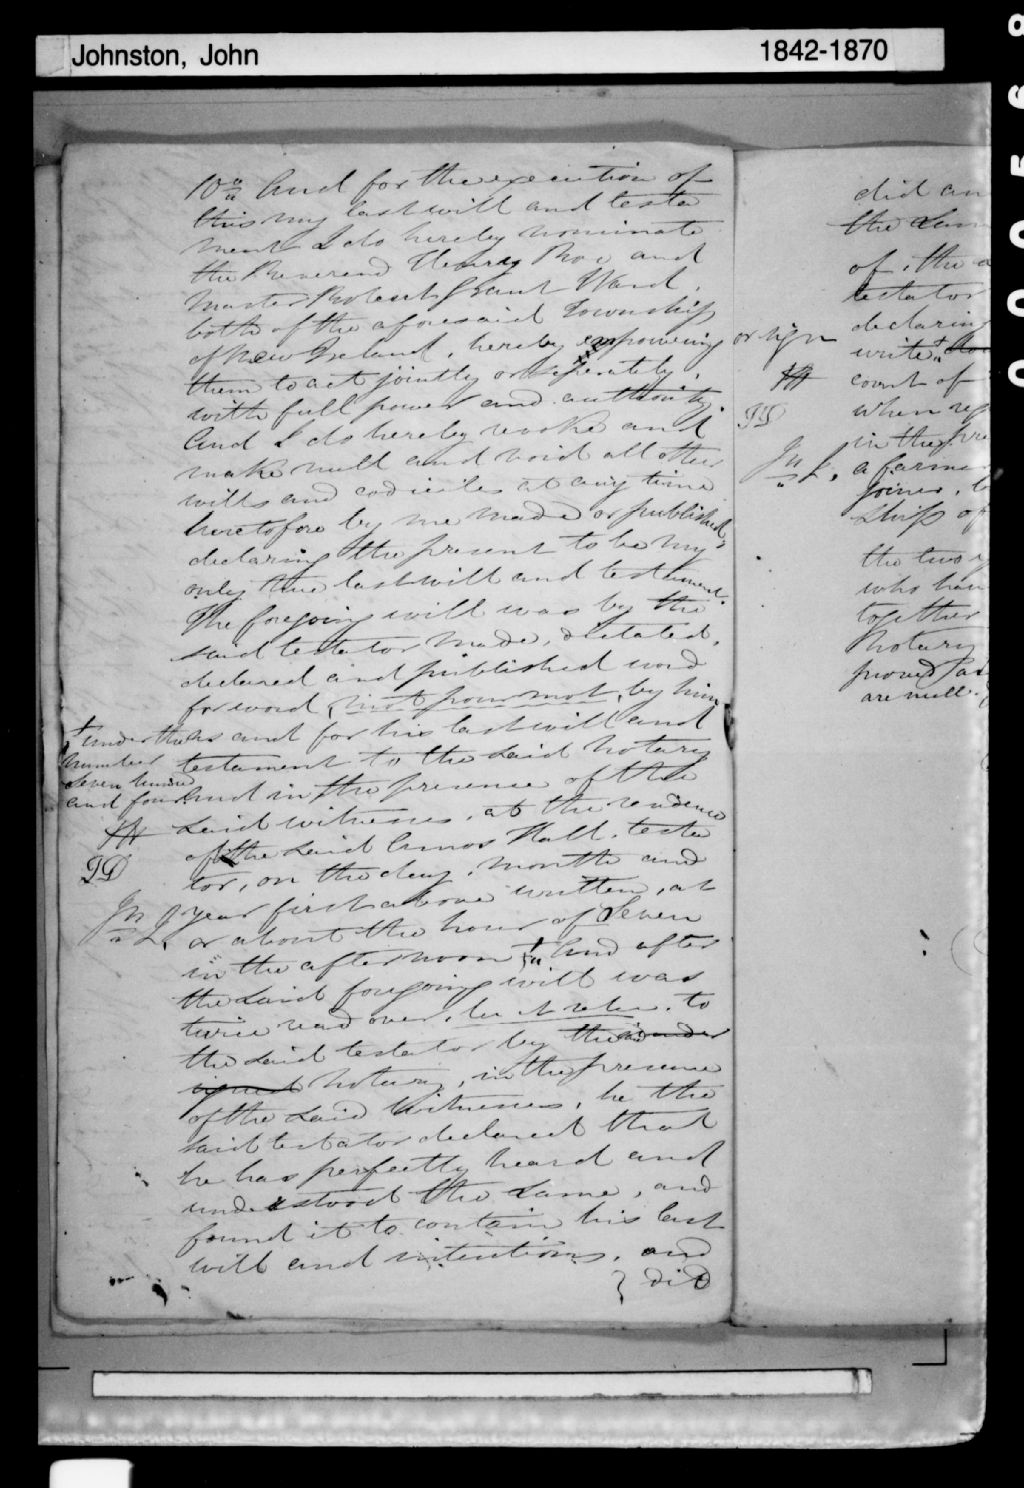 Johnston, John 1842-1870
10° And for the execution of
this my last will and testa
ment I do hereby nominate
the Reverend Henry Roe and
Master Robert Grant Ward,
both of the aforesaid Township
of New Ireland, hereby empowering
them to act jointly or seperately,
with full power and authority,
And I do hereby revoke and
make null and void all other
wills and codiciles at any time
heretofore by me made or published,
declaring the present to be my
only true last will and testament.
The foregoing will was by the
said testator made, dictated,
declared and published word
for word, mot pour mot, by him
as and for his last will and
testament to the said Notary
and in the presence of the
said witnesses, at the residence
of the said Amos Hall, testa
tor, on the day, month and
year first above written, at
or about the hour of Seven
in the afternoon + And after
the said foregoing will was
twice read over, lu et relu, to
the said testator by the said under
signed Notary, in the presence
of the said Witnesses, he the
said testator declared that
he has perfectly heard and
understood the same, and
found it to contain his last
will and intentions, and
did
+ under the
number
seven hundred
and four
AH
JD
Jn J.
or sign
AH
JD
Jn J.
did an
the sam
of, the a
testator
declaring
write +
count of
when req
in the pre
a farmer
joiner, b
ship of
the two
who have
together
Notary
proved
are null.